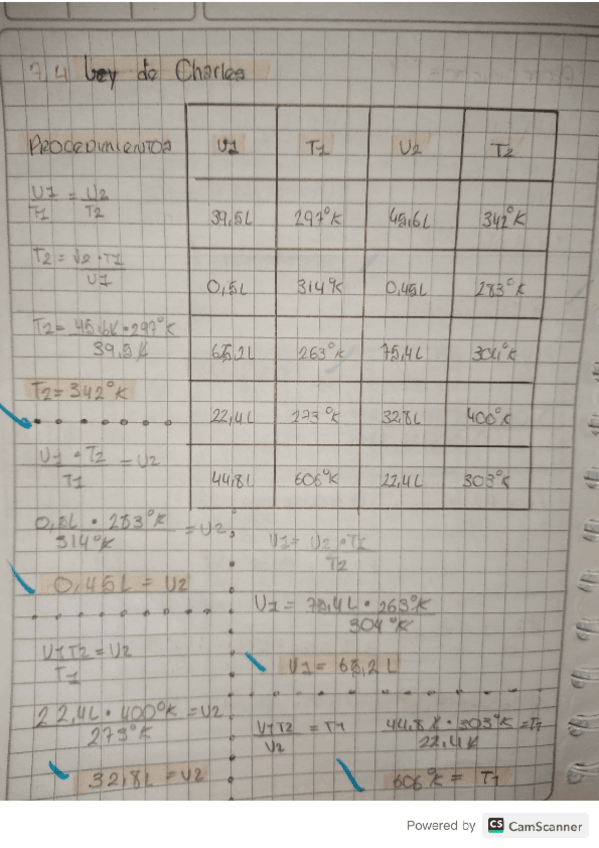 7.4 Ley de Charles
PROCEDIMIENTOS
V1 T1 V2 T2
39,5L 297°K 45,6L 342°K
0,5L 314°K 0,45L 283°K
65,2L 263°K 75,4L 304°K
22,4L 273°K 32,8L 400°K
44,8L 606°K 22,4L 303°K
V1 = V2
T1 T2
T2 = V2 • T1
V1
T2 = 45,6L • 297°K
39,5L
T2 = 342°K
V1 • T2 = V2
T1
0,5L • 283°K = V2
314°K
0,45L = V2
V1 T2 = V2
T1
22,4L • 400°K = V2
273°K
32,8L = V2
V1 = V2 • T1
T2
V1 = 75,4L • 263°K
304°K
V1 = 65,2L
V1 T2 = T1
V2
44,8L • 303°K = T1
22,4L
606°K = T1
Powered by CS CamScanner